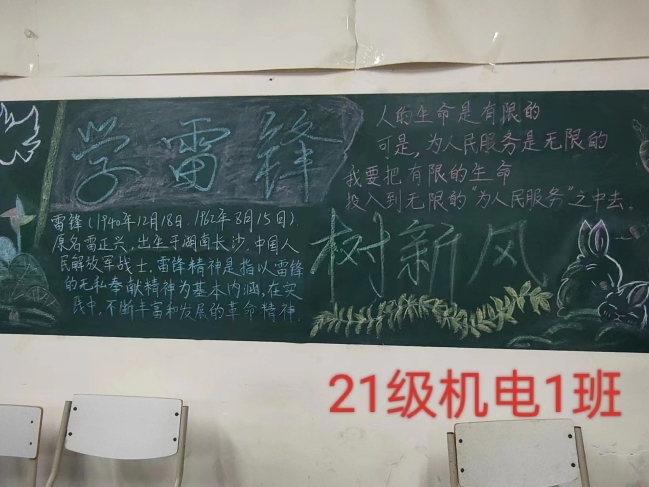 学雷锋
人的生命是有限的
可是，为人民服务是无限的
我要把有限的生命
投入到无限的“为人民服务”之中去。
雷锋（1940年12月18日.1962年8月15日）
原名雷正兴，出生于湖南长沙.中国人
民解放军战士，雷锋精神是指以雷锋
的无私奉献精神为基本内涵，在实
践中，不断丰富和发展的革命精神.
树新风
21级机电1班